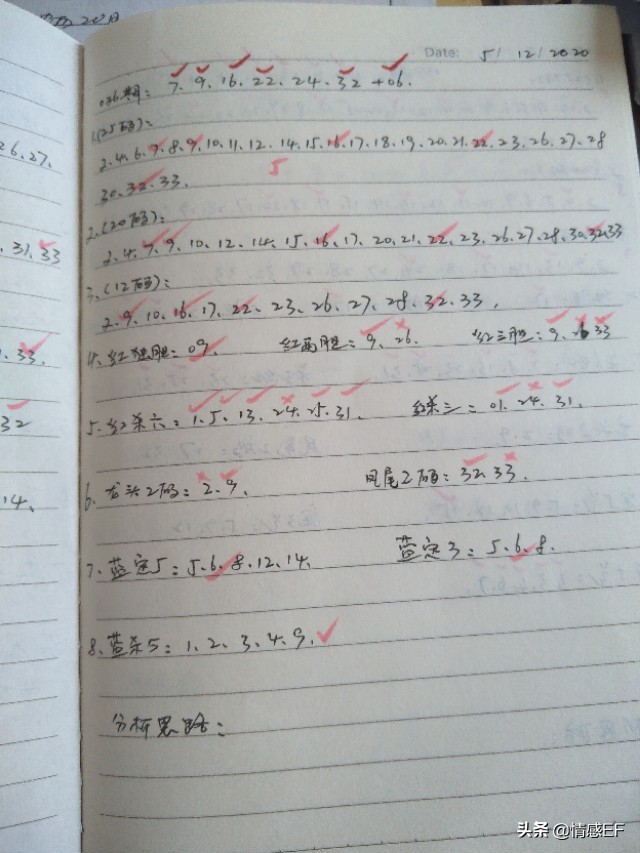 Date: 5/ 12/2020
036期: 7、9、16、22、24、32 +06.
1.(25码):
2.4.6.7.8.9.10.11.12.14.15.16.17.18.19.20.21.22.23.26.27.28
30.32.33.
5
2.(20码):
2.4.7.9.10.12.14.15.16.17.20.21.22.23.26.27.28.30.32.33
3.(12码):
2.9.10.16.17.22.23.26.27.28.32.33.
4.红独胆: 09. 红两胆: 9、26. 红三胆: 9、26 33
5.红杀六: 1.5.13.24.25.31. 红杀三: 01.24.31.
6.龙头2码: 2、9. 凤尾2码: 32.33.
7.蓝定5: 5.6.8.12.14. 蓝定3: 5.6.8.
8.蓝杀5: 1、2、3、4、9.
分析思路:
26.27.
31.33
33.
32
14、
头条 @情感EF